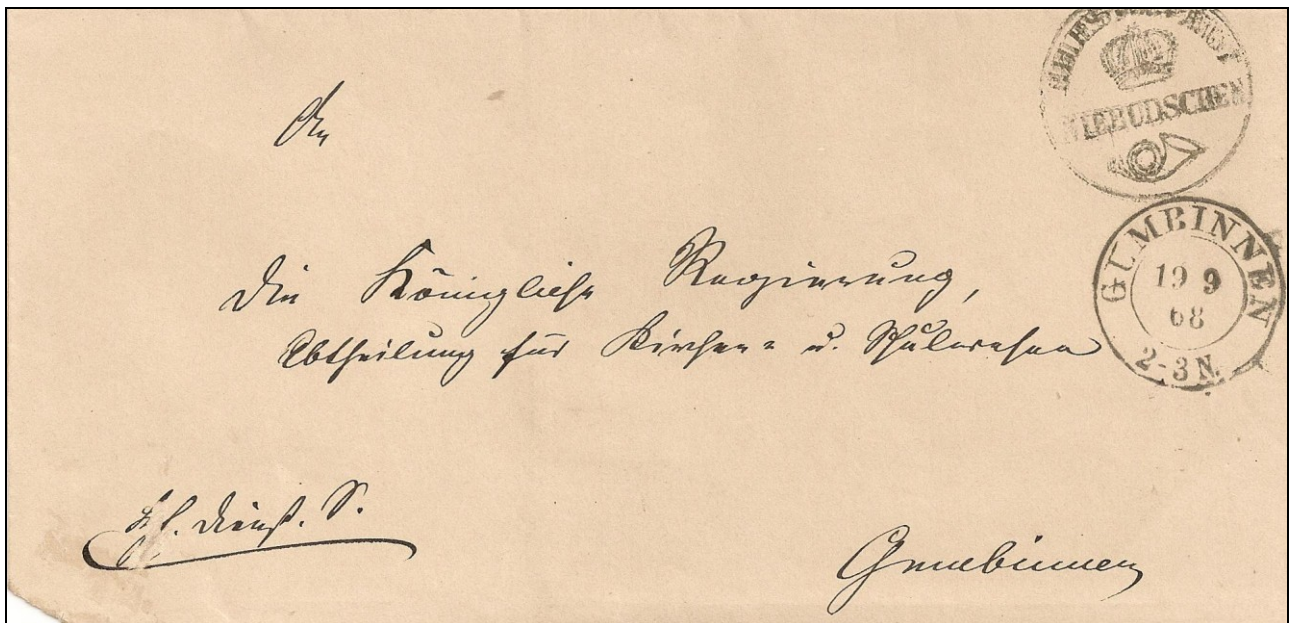 NIEBUDSCHEN
GUMBINNEN
19 9
68
2-3 N.
An
die Königliche Regierung,
Abtheilung für Kirchen- u. Schulwesen
Dienst. S.
Gumbinnen